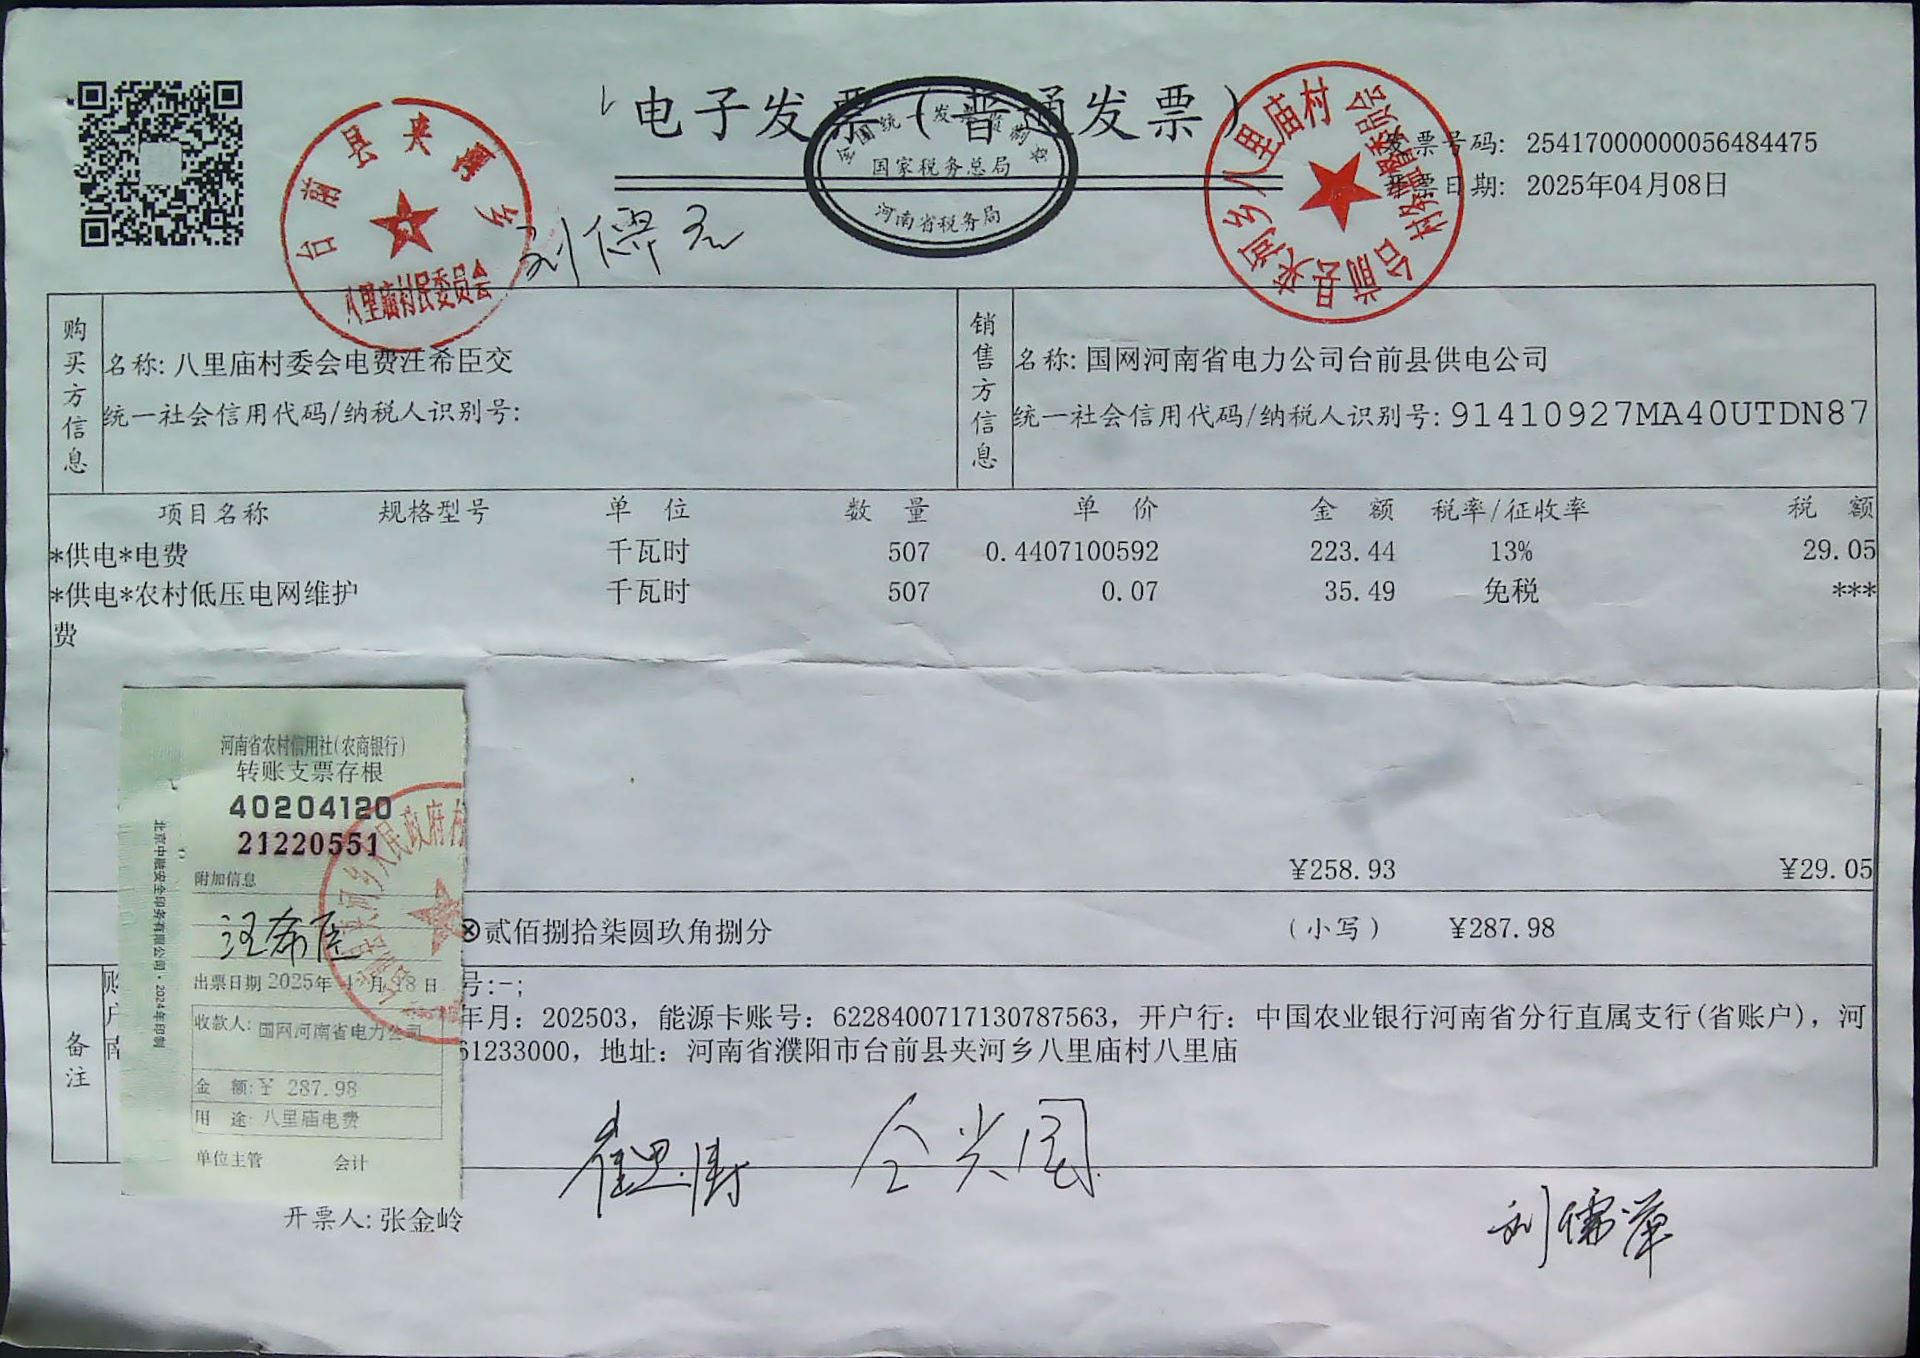 电子发票（普通发票）
全国统一发票监制章
国家税务总局
河南省税务局
台前县夹河乡
八里庙村民委员会
台前县夹河乡八里庙村
村务监督委员会
发票号码: 25417000000056484475
开票日期: 2025年04月08日
购买方信息
名称: 八里庙村委会电费汪希臣交
统一社会信用代码/纳税人识别号:
销售方信息
名称: 国网河南省电力公司台前县供电公司
统一社会信用代码/纳税人识别号: 91410927MA40UTDN87
项目名称 规格型号 单 位 数 量 单 价 金 额 税率/征收率 税 额
*供电*电费 千瓦时 507 0.4407100592 223.44 13% 29.05
*供电*农村低压电网维护 千瓦时 507 0.07 35.49 免税 ***
费
¥258.93 ¥29.05
⊗贰佰捌拾柒圆玖角捌分 （小写） ¥287.98
备注
号:-;
年月: 202503, 能源卡账号: 6228400717130787563, 开户行: 中国农业银行河南省分行直属支行(省账户), 河
南
61233000, 地址: 河南省濮阳市台前县夹河乡八里庙村八里庙
河南省农村信用社(农商银行)
转账支票存根
40204120
21220551
附加信息
汪希臣
出票日期 2025年 4 月 18 日
收款人: 国网河南省电力公司
金 额: ¥ 287.98
用 途: 八里庙电费
单位主管 会计
北京中融安全印务有限公司·2024年印制
仝兴国
开票人: 张金岭
刘儒萍